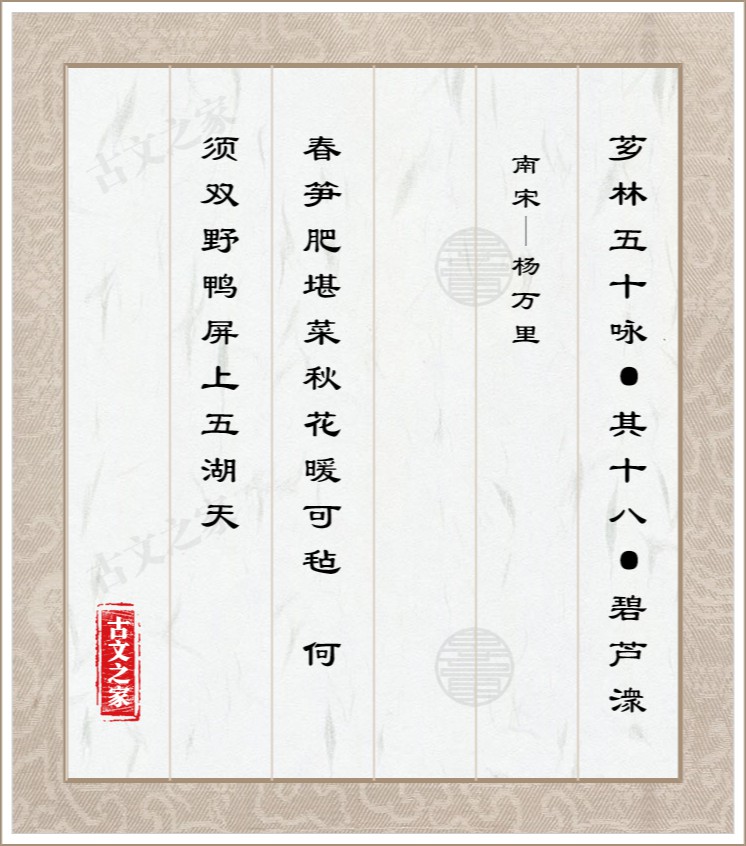 芗林五十咏●其十八●碧芦潨
南宋｜杨万里
春笋肥堪菜秋花暖可毡　何
须双野鸭屏上五湖天
古文之家
古文之家
古文之家